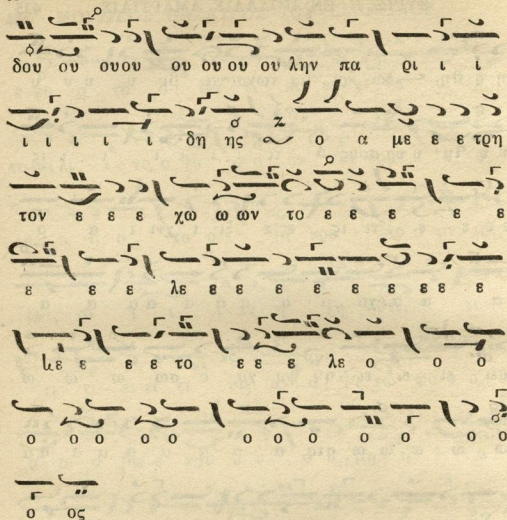 δου ου ουου ου ου ου ου λην πα ρι ι ι
ι ι ι ι ι δη ης ο α με ε ε τρη
τον ε ε ε χω ω ων το ε ε ε ε ε
ε ε ε λε ε ε ε ε ε ε ε ε ε
με ε ε ε το ε ε ε λε ο ο ο
ο ο ο ο ο ο ο ο ο ο ο ο
ο ος